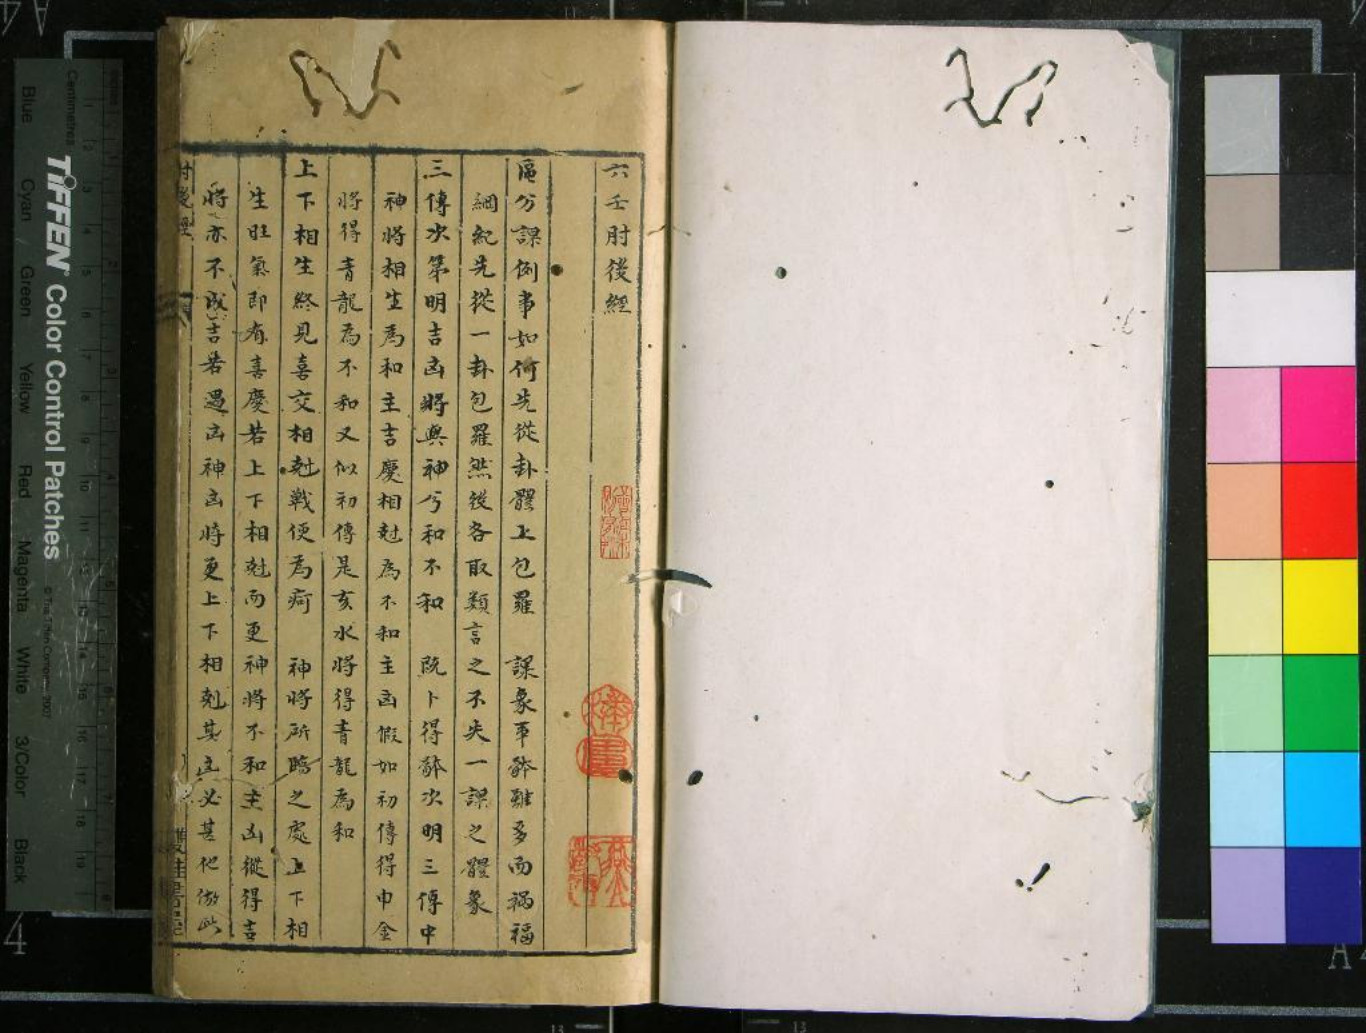 六壬肘後經
區分課例事如何先從卦體上包羅　課象事辭雖多而禍福
綱紀先從一卦包羅然後各取類言之不失一課之體象
三傳次第明吉凶將與神兮和不和　既卜得辭次明三傳中
神將相生為和主吉慶相尅為不和主凶假如初傳得申金
將得青龍為不和又似初傳是亥水將得青龍為和
上下相生終見喜交相尅戰便為痾　神將所臨之處上下相
生旺氣即有喜慶若上下相尅而更神將不和主凶縱得吉
將亦不成吉若遇凶神凶將更上下相尅其凶必甚他倣此
肘後經
Centimetres
TIFFEN Color Control Patches
© The Tiffen Company, 2007
Blue
Cyan
Green
Yellow
Red
Magenta
White
3/Color
Black